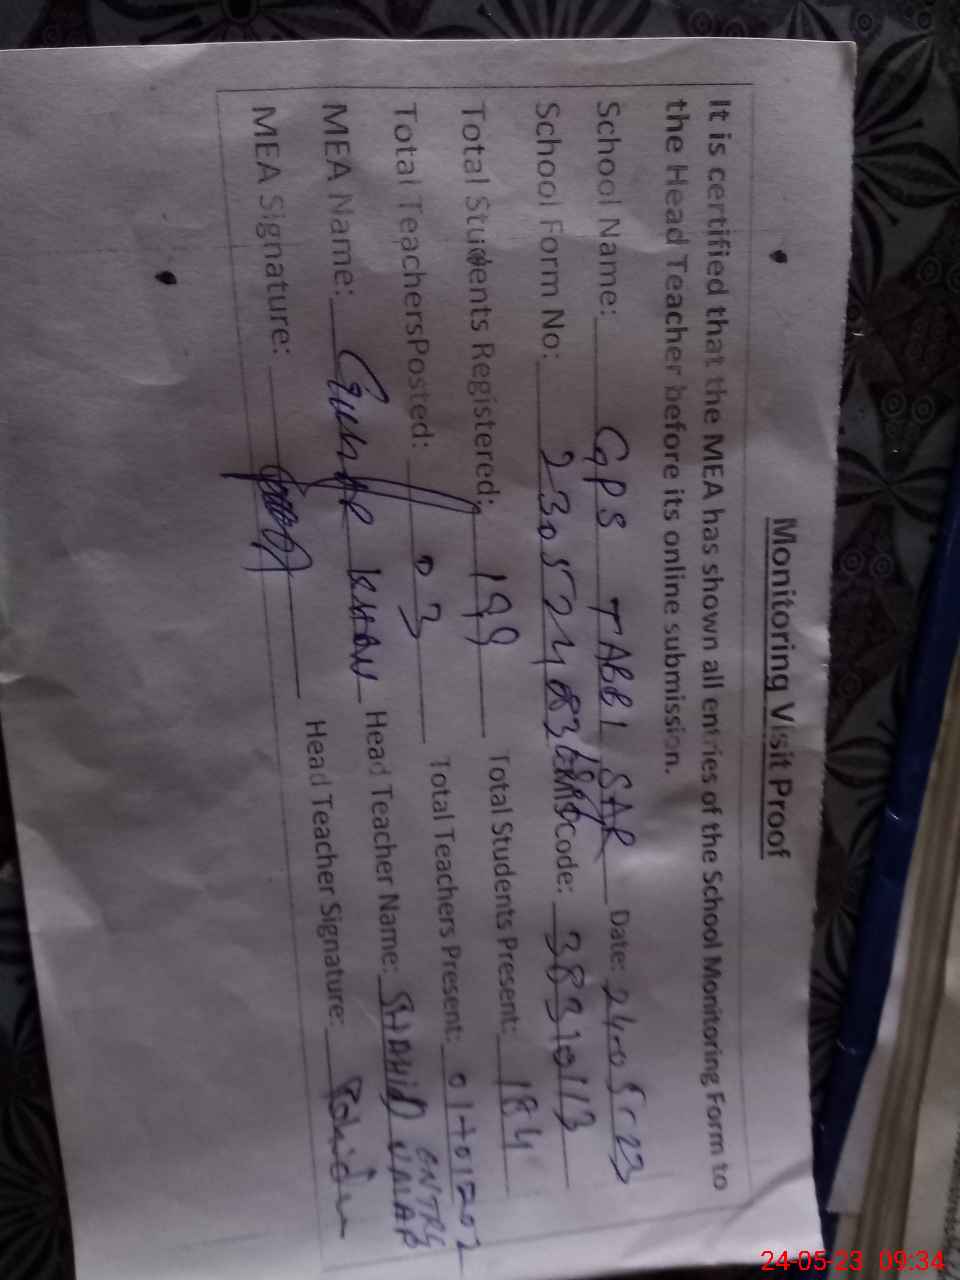 Monitoring Visit Proof
It is certified that the MEA has shown all entries of the School Monitoring Form to
the Head Teacher before its online submission.
School Name: GPS TABBI SAR Date: 24-05-23
School Form No: 230524083 Code: 38310113
Total Students Registered: 199 Total Students Present: 184
Total TeachersPosted: 03 Total Teachers Present: 01+01=02
MEA Name: KHAN Head Teacher Name: SHAHID
MEA Signature: Head Teacher Signature:
24-05-23 09:34